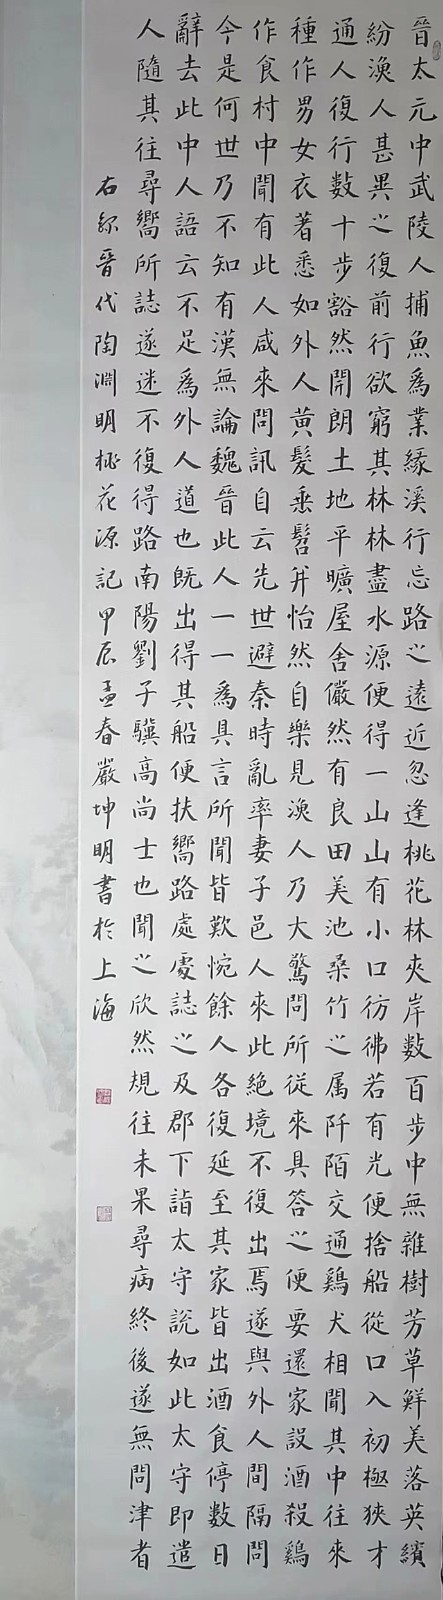 晉太元中武陵人捕魚爲業緣溪行忘路之遠近忽逢桃花林夾岸數百步中無雜樹芳草鮮美落英繽
紛漁人甚異之復前行欲窮其林林盡水源便得一山山有小口彷彿若有光便捨船從口入初極狹才
通人復行數十步豁然開朗土地平曠屋舍儼然有良田美池桑竹之属阡陌交通鷄犬相聞其中往來
種作男女衣著悉如外人黃髮垂髫并怡然自樂見漁人乃大驚問所從來具答之便要還家設酒殺鷄
作食村中聞有此人咸來問訊自云先世避秦時亂率妻子邑人來此絶境不復出焉遂與外人間隔問
今是何世乃不知有漢無論魏晉此人一一爲具言所聞皆歎惋餘人各復延至其家皆出酒食停數日
辭去此中人語云不足爲外人道也既出得其船便扶嚮路處處誌之及郡下詣太守說如此太守即遣
人隨其往尋嚮所誌遂迷不復得路南陽劉子驥高尚士也聞之欣然規往未果尋病終後遂無問津者
右録晉代陶淵明桃花源記甲辰孟春嚴坤明書於上海